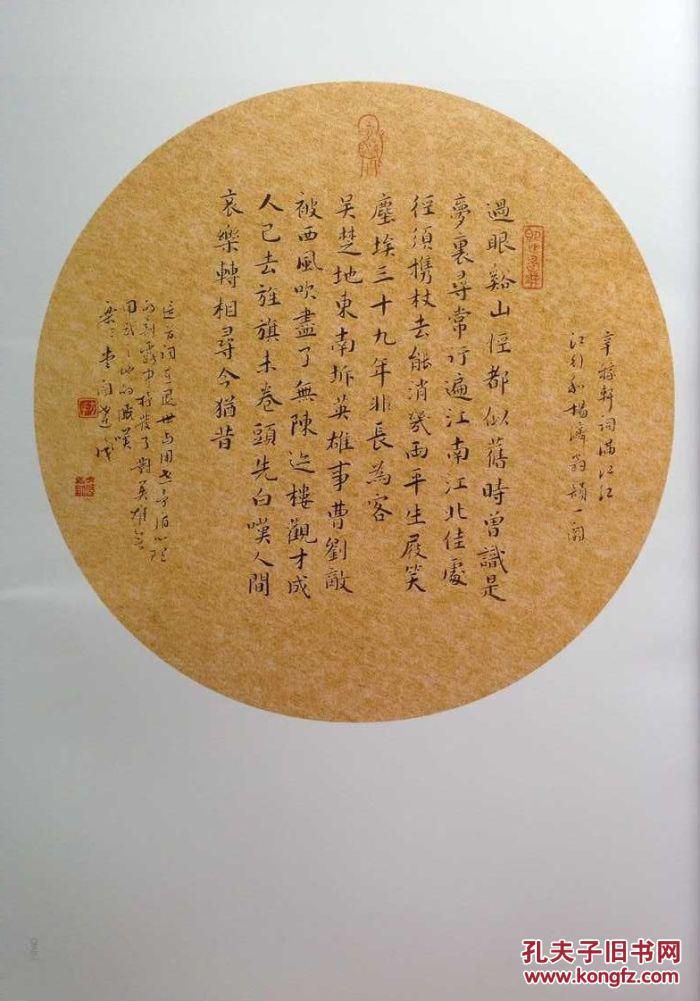 辛稼軒詞滿江紅
江行和楊濟翁韻一闋
過眼谿山恠都似舊時曾識是
夢裏尋常行遍江南江北佳處
徑須携杖去能消幾兩平生屐笑
塵埃三十九年非長為客
吳楚地東南坼英雄事曹劉敵
被西風吹盡了無陳迹樓觀才成
人已去旌旗未卷頭先白嘆人間
哀樂轉相尋今猶昔
這首詞
對英雄無
用武之地的感嘆
孔夫子旧书网
www.kongfz.com